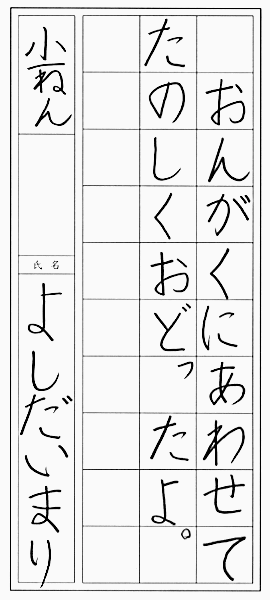 おんがくにあわせて
たのしくおどったよ。
小一ねん
氏名
よしだいまり